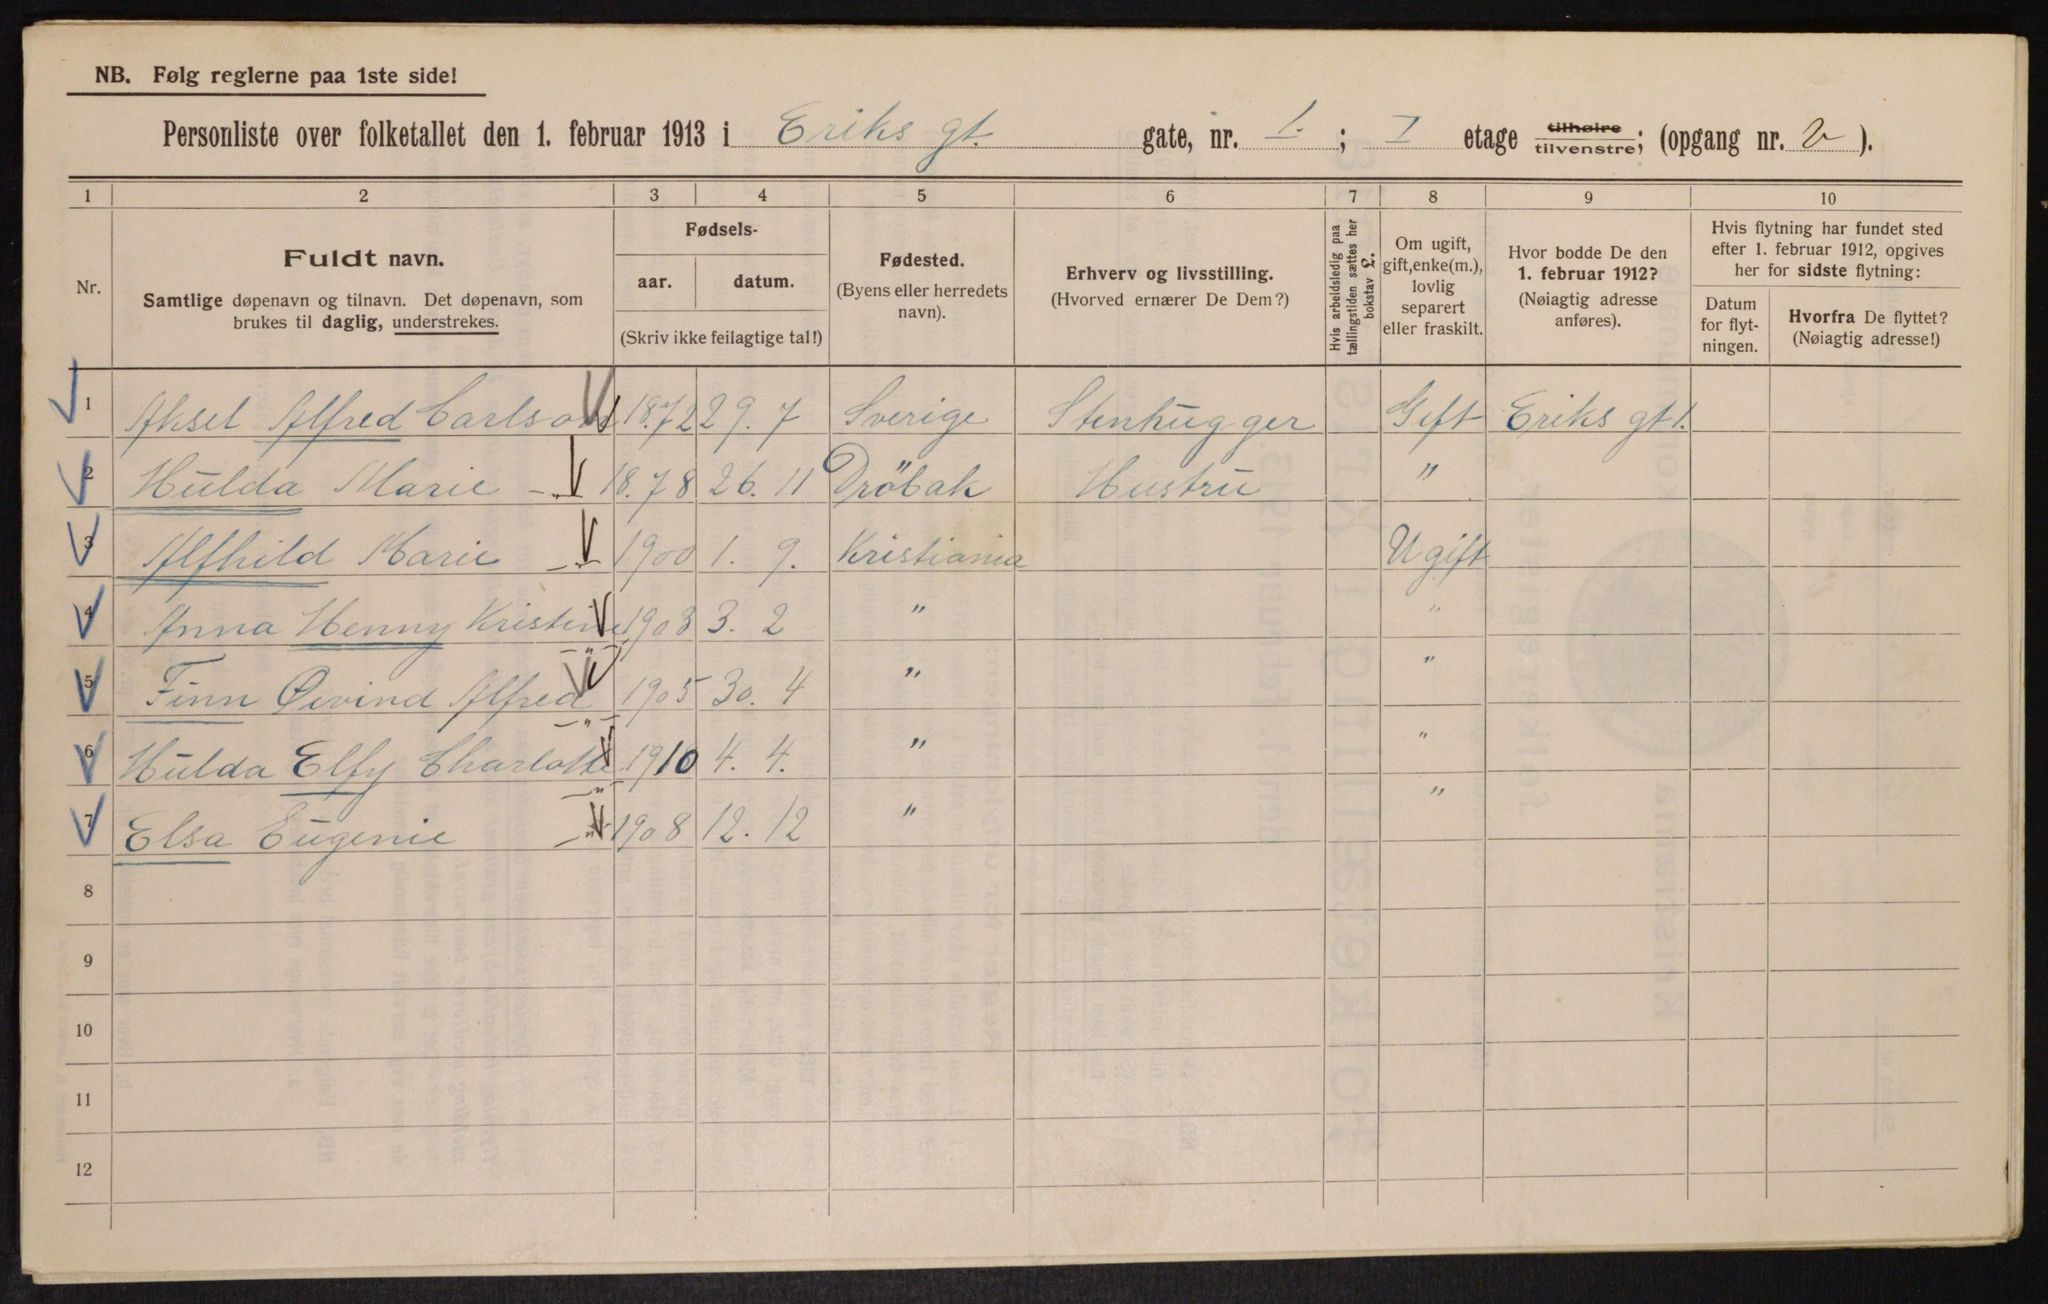 NB. Følg reglerne paa 1ste side!
Personliste over folketallet den 1. februar 1913 i Eriks gt. gate, nr. 1. ; I etage tilhøire tilvenstre; (opgang nr. 2 ).
1 2 3 4 5 6 7 8 9 10
Nr.
Fuldt navn.
Samtlige døpenavn og tilnavn. Det døpenavn, som
brukes til daglig, understrekes.
Fødsels-
aar. datum.
(Skriv ikke feilagtige tal!)
Fødested.
(Byens eller herredets
navn).
Erhverv og livsstilling.
(Hvorved ernærer De Dem?)
Hvis arbeidsledig paa
tællingstiden sættes her
bokstav L.
Om ugift,
gift, enke(m.),
lovlig
separert
eller fraskilt.
Hvor bodde De den
1. februar 1912?
(Nøiagtig adresse
anføres).
Hvis flytning har fundet sted
efter 1. februar 1912, opgives
her for sidste flytning:
Datum
for flyt-
ningen.
Hvorfra De flyttet?
(Nøiagtig adresse!)
1 Aksel Alfred Carlson 1872 29. 7 Sverige Stenhugger Gift Eriks gt 1.
2 Hulda Marie -"- 18.78 26. 11 Dröbak Hustru "
3 Alfhild Marie -"- 1900 1. 9. Kristiania Ugift
4 Anna Henny Kristine -"- 1903 3. 2 " "
5 Finn Øivind Alfred -"- 1905 30. 4 " "
6 Hulda Elfy Charlotte -"- 1910 4. 4. " "
7 Elsa Eugenie -"- 1908 12. 12 " "
8
9
10
11
12